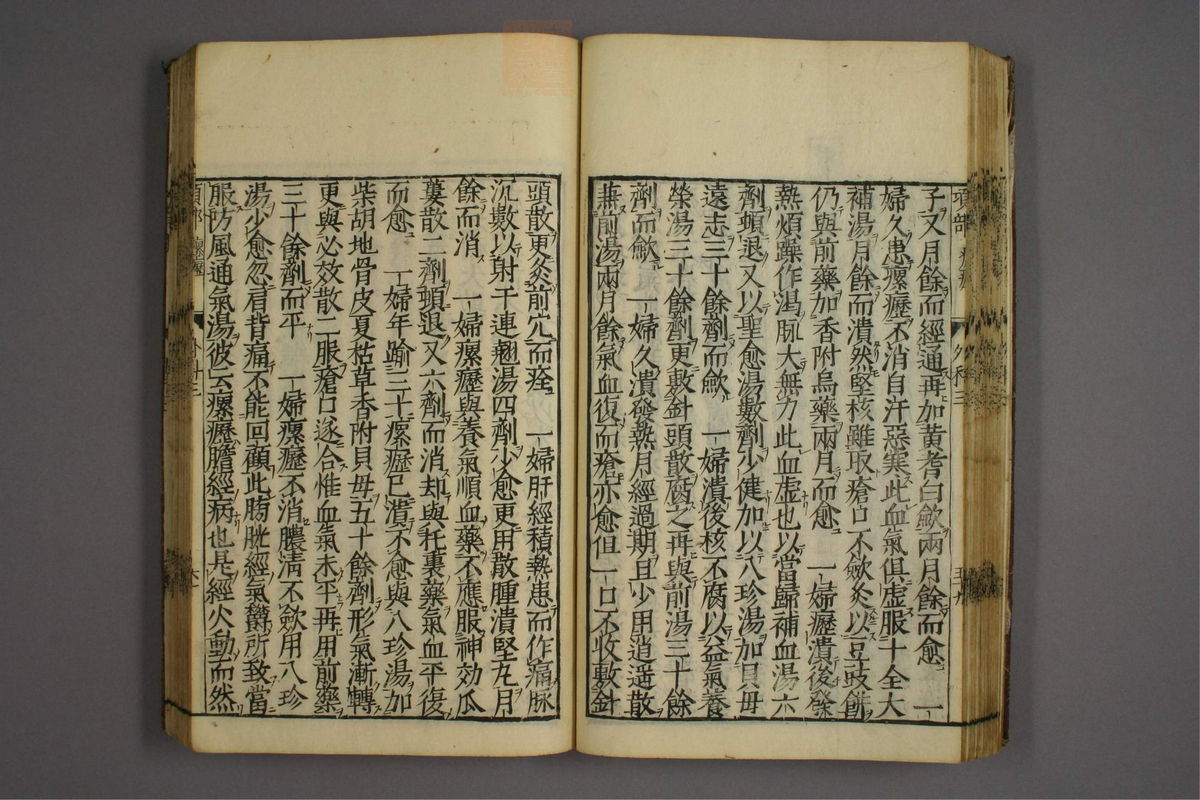 子又月餘而經通再加黃芪白歛兩月餘而愈　一
婦久患瘰癧不消自汗惡寒此血氣俱虛服十全大
補湯月餘而潰然堅核雖取瘡口不歛灸以豆豉餅
仍與前藥加香附烏藥兩月而愈　一婦癧潰後發
熱煩躁作渴脉大無力此血虛也以當歸補血湯六
劑頓退又以聖愈湯數劑少健加以八珍湯加貝母
遠志三十餘劑而歛　一婦潰後核不腐以益氣養
榮湯三十餘劑更敷針頭散腐之再與前湯三十餘
劑而歛　一婦久潰發熱月經過期且少用逍遥散
兼前湯兩月餘氣血復而瘡亦愈但一口不收敷針
頭散更灸前穴而痊　一婦肝經積熱患而作痛脉
沉數以射干連翹湯四劑少愈更用散腫潰堅丸月
餘而消　一婦瘰癧與養氣順血藥不應服神効瓜
蔞散二劑頓退又六劑而消却與托裏藥氣血平復
而愈　一婦年踰三十瘰癧已潰不愈與八珍湯加
柴胡地骨皮夏枯草香附貝母五十餘劑形氣漸轉
更與必效散二服瘡口遂合惟血氣未平再用前藥
三十餘劑而平　一婦瘰癧不消膿淸不歛用八珍
湯少愈忽肩背痛不能回顧此膀胱經氣欝所致當
服防風通氣湯彼云瘰癧膽經病也是經火動而然